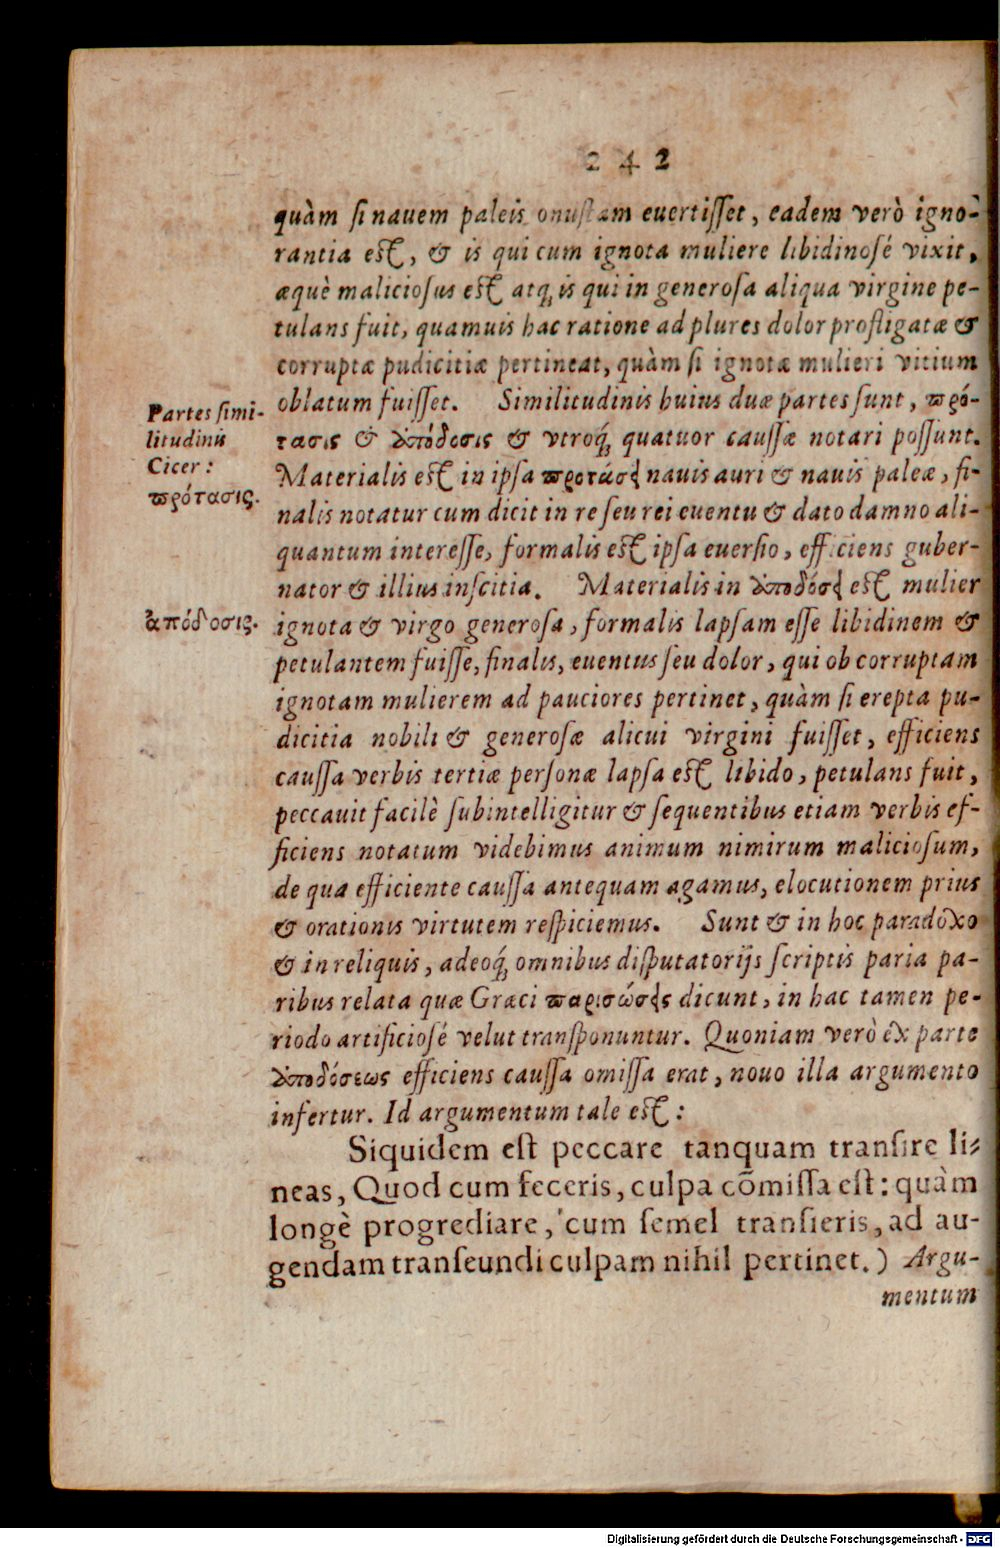 242
quàm si nauem paleis onustam euertisset, eadem verò igno-
rantia est, & is qui cum ignota muliere libidinosé vixit,
æquè maliciosus est atq; is qui in generosa aliqua virgine pe-
tulans fuit, quamuis hac ratione ad plures dolor profligatæ &
corruptæ pudicitiæ pertineat, quàm si ignotæ mulieri vitium
oblatum fuisset. Similitudinis huius duæ partes sunt, πρό-
τασις & ἀπόδοσις & vtroq; quatuor caussæ notari possunt.
Materialis est in ipsa προτάσει nauis auri & nauis paleæ, fi-
nalis notatur cum dicit in re seu rei euentu & dato damno ali-
quantum interesse, formalis est ipsa euersio, efficiens guber-
nator & illius inscitia. Materialis in ἀποδόσει est mulier
ignota & virgo generosa, formalis lapsam esse libidinem &
petulantem fuisse, finalis, euentus seu dolor, qui ob corruptam
ignotam mulierem ad pauciores pertinet, quàm si erepta pu-
dicitia nobili & generosæ alicui virgini fuisset, efficiens
caussa verbis tertiæ personæ lapsa est libido, petulans fuit,
peccauit facilè subintelligitur & sequentibus etiam verbis ef-
ficiens notatum videbimus animum nimirum maliciosum,
de qua efficiente caussa antequam agamus, elocutionem prius
& orationis virtutem respiciemus. Sunt & in hoc paradoxo
& in reliquis, adeoq; omnibus disputatorijs scriptis paria pa-
ribus relata quæ Græci παρισώσεις dicunt, in hac tamen pe-
riodo artificiosé velut transponuntur. Quoniam verò ex parte
ἀποδόσεως efficiens caussa omissa erat, nouo illa argumento
infertur. Id argumentum tale est:
Siquidem est peccare tanquam transire li-
neas, Quod cum feceris, culpa cõmissa est: quàm
longè progrediare, cum semel transieris, ad au-
gendam transeundi culpam nihil pertinet.) Argu-
mentum
Partes simi-
litudinis
Cicer:
πρότασις.
ἀπόδοσις.
Digitalisierung gefördert durch die Deutsche Forschungsgemeinschaft - DFG